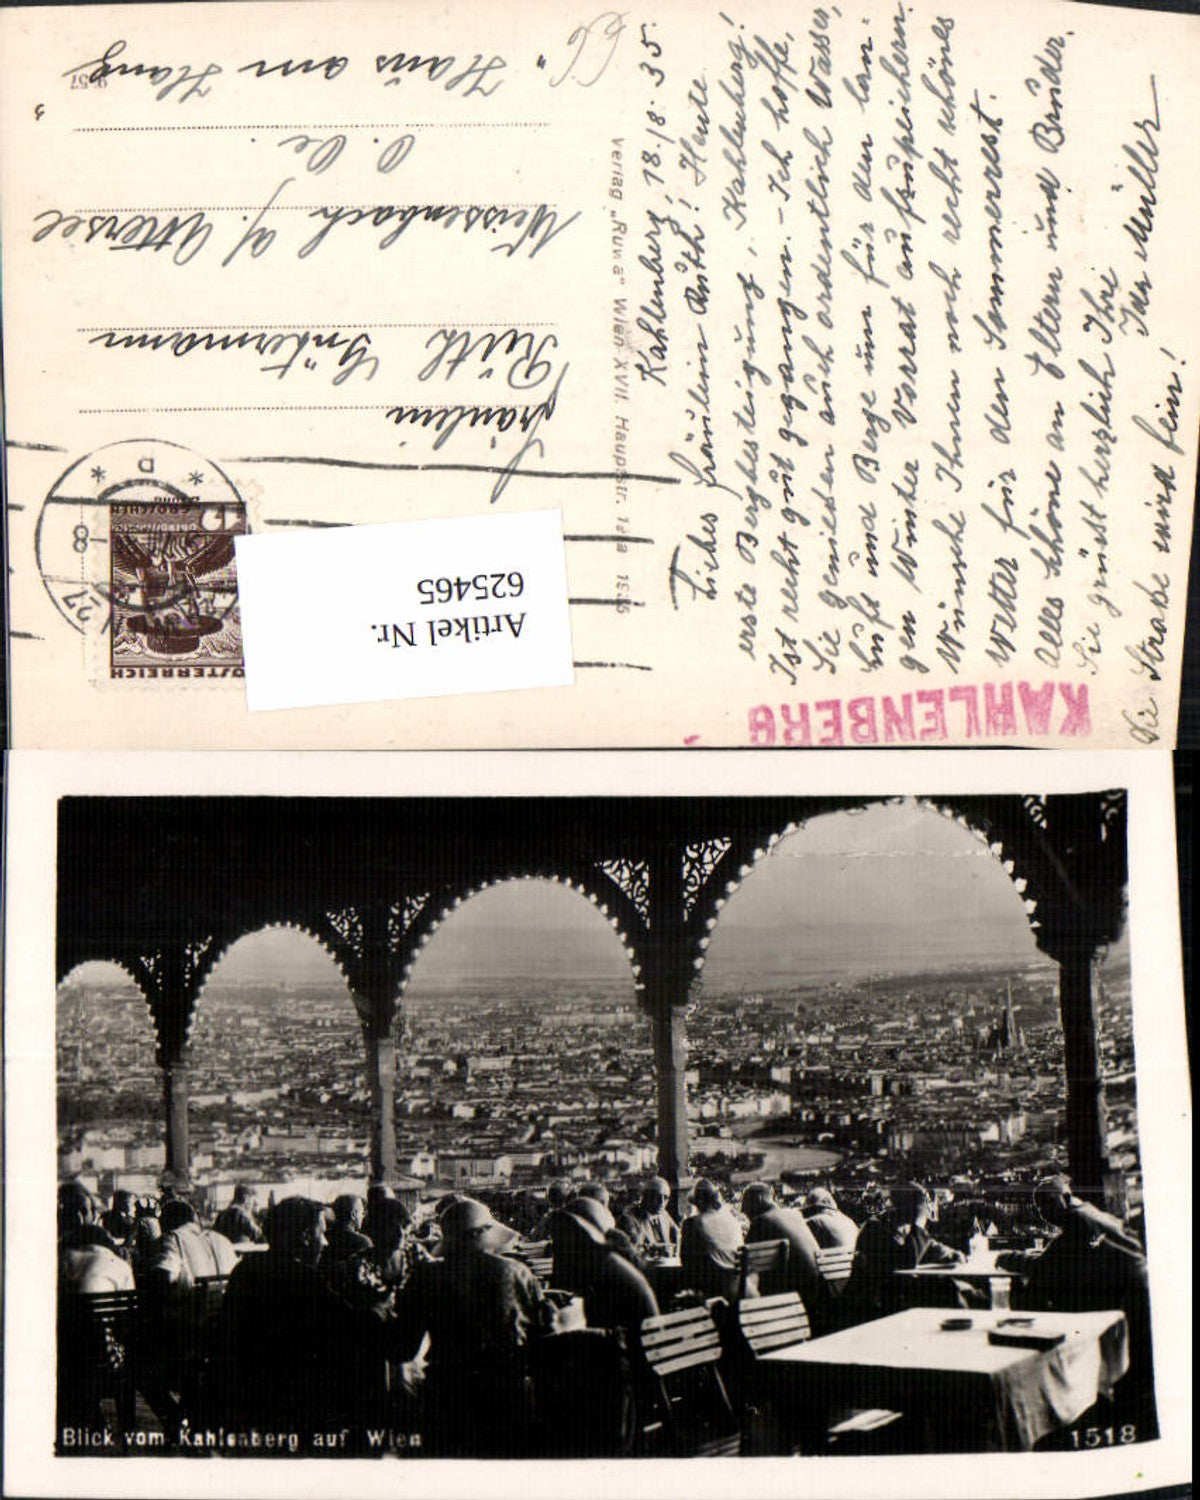 Kahlenberg, 18.18.35.
Liebes Fräulein Ruth! Heute
erste Bergbesteigung, Kahlenberg!
Ist recht gut gegangen. - Ich hoffe,
Sie genießen auch ordentlich Wasser,
Luft und Berge um für den lan-
gen Winter Vorrat aufzuspeichern.
Wünsche Ihnen noch recht schönes
Wetter für den Sommerrest.
Alles Schöne an Eltern und Brüder.
Sie grüßt herzlich Ihre
Müller
Die Straße wird fein!
KAHLENBERG
Verlag „Ruwa“ Wien XVII. Hauptstr.
ÖSTERREICH
GROSCHEN
8
D
Fräulein
Ruth Gütermann
Weissenbach a/. Attersee
O. Oe.
"Haus am Hang"
Artikel Nr.
625465
Blick vom Kahlenberg auf Wien
1518